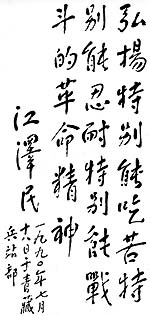 弘揚特别能吃苦特
别能忍耐特别能戰
斗的革命精神
江澤民
一九九〇年七月
十八日于青藏
兵站部